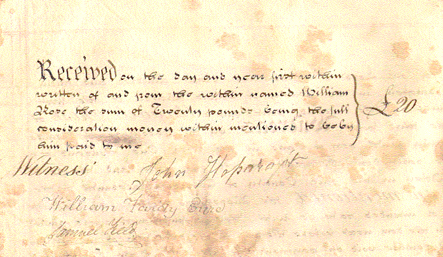 Received on the day and year first within
written of and from the within named William
Rose the sum of Twenty pounds being the full
consideration money within mentioned to be by
him paid to me
£20
Witness
John
William
Samuel